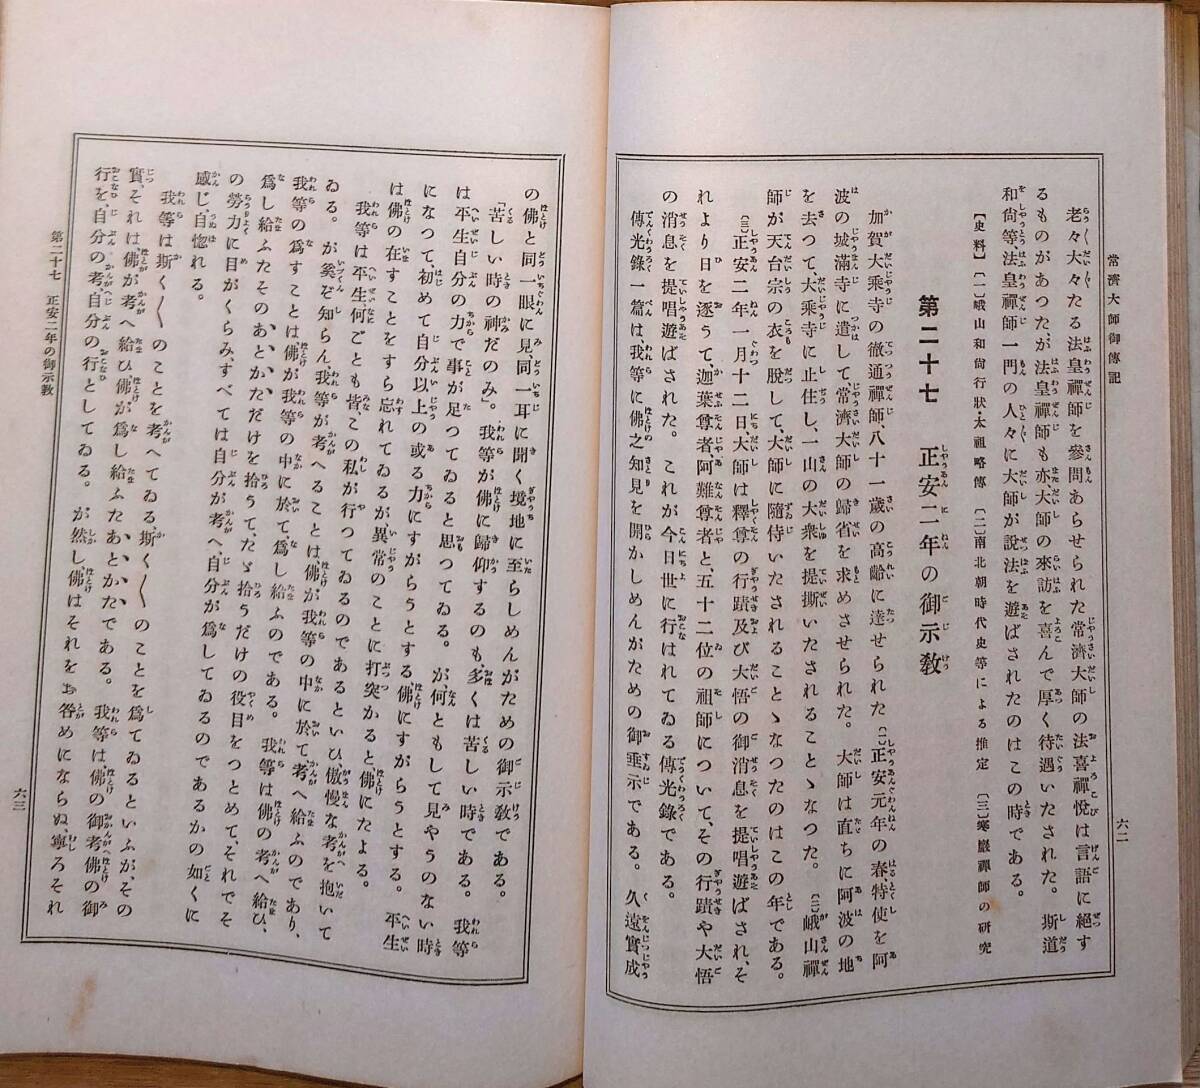 常濟大師御傳記
六二
老々大々たる法皇禪師を參問あらせられた常濟大師の法喜禪悅は言語に絕す
るものがあつた、が法皇禪師も亦大師の來訪を喜んで厚く待遇いたされた。斯道
和尙等、法皇禪師一門の人々に大師が說法を遊ばされたのはこの時である。
〔史料〕〔一〕峨山和尙行狀・太祖略傳〔二〕南北朝時代史等による推定〔三〕寒巖禪師の硏究
第二十七　正安二年の御示敎
加賀大乘寺の徹通禪師、八十一歲の高齡に達せられた〔一〕正安元年の春特使を阿
波の城滿寺に遣して常濟大師の歸省を求めさせられた。大師は直ちに阿波の地
を去つて、大乘寺に止住し、一山の大衆を提撕いたされることゝなつた。〔二〕峨山禪
師が天台宗の衣を脫して、大師に隨侍いたされることゝなつたのはこの年である。
〔三〕正安二年一月十二日、大師は釋尊の行蹟及び大悟の御消息を提唱遊ばされ、そ
れより日を逐うて、迦葉尊者、阿難尊者と、五十二位の祖師について、その行蹟や大悟
の消息を提唱遊ばされた。これが今日世に行はれてゐる傳光錄である。
傳光錄一篇は、我等に佛之知見を開かしめんがための御垂示である。久遠實成
の佛と同一眼に見、同一耳に聞く境地に至らしめんがための御示敎である。
「苦しい時の神だのみ」。我等が佛に歸仰するのも、多くは苦しい時である。我等
は平生自分の力で事が足つてゐると思つてゐる。が何ともして見やうのない時
になつて初めて自分以上の或る力にすがらうとする佛にすがらうとする。平生
は佛の在すことをすら忘れてゐるが異常のことに打突かると佛にたよる。
我等は平生、何ごとも皆、この私が行つてゐるのであるといひ、傲慢な考を抱いて
ゐる。が奚ぞ知らん、我等が考へることは佛が我等の中に於て考へ給ふのであり、
我等の爲すことは佛が我等の中に於て、爲し給ふのである。我等は佛の考へ給ひ、
爲し給ふたそのあとかただけを拾うて、たゞ拾うだけの役目をつとめて、それでそ
の勞力に目がくらみ、すべては自分が考へ、自分が爲してゐるのであるかの如くに
感じ、自惚れる。
我等は斯く〱のことを考へてゐる、斯く〱のことを爲てゐるといふが、その
實、それは、佛が考へ給ひ佛が、爲し給ふたあとかたである。我等は佛の御考佛の御
行を、自分の考、自分の行としてゐる。が然し、佛はそれをお咎めにならぬ、寧ろそれ
第二十七　正安二年の御示敎
六三